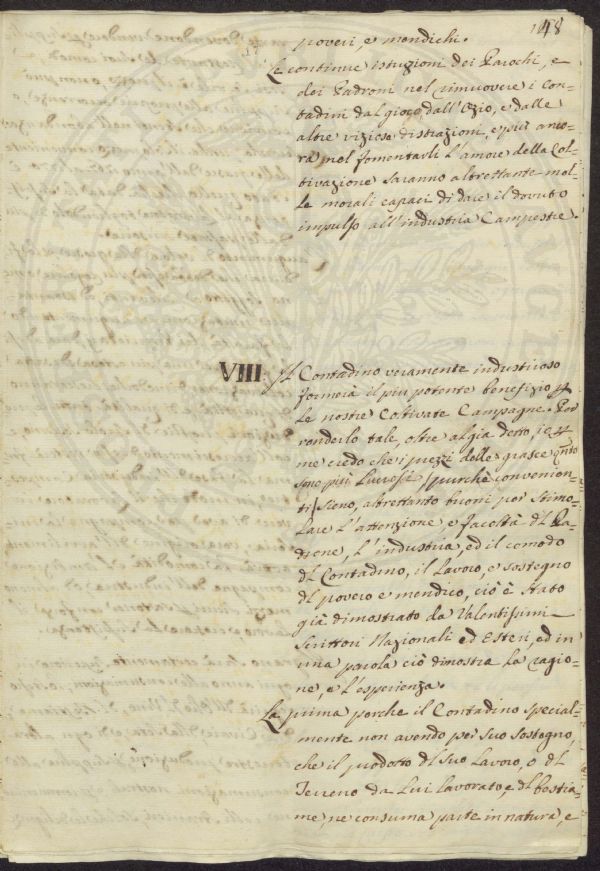 148
poveri, e mendichi.
Le continue istuzioni dei Parochi, e
dei Padroni nel rimuovere i Con-
tadini dal gioco, dall'Ozio, e dalle
altre viziose distrazioni, e più anco-
ra nel fomentarli l'amore della Col-
tivazione saranno altrettante mol-
le morali capaci di dare il dovuto
impulso all'industria Campestre.
VIII. Il Contadino veramente industrioso
formerà il più potente benefizio p
le nostre Coltivate Campagne. Per
renderlo tale, oltre al già detto, io
me credo che i prezzi delle grasce qnto
sono più Lucrosi /purchè convenien-
ti/ sieno, altrettanto buoni per stimo-
lare l'attenzione, e facoltà dl Pa-
drone, l'industria, ed il comodo
dl Contadino, il Lavoro, e sostegno
dl povero e mendico, ciò è stato
già dimostrato da Valentissimi
Scrittori Nazionali ed Esteri, ed in
una parola ciò dimostra la ragio-
ne, e l'esperienza.
La prima perche il Contadino special-
mente non avendo per suo sostegno
che il prodotto dl suo Lavoro, o dl
Terreno da Lui lavorato, e dl bestia-
me, ne consuma parte in natura, e